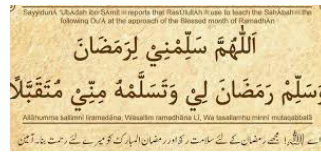 Sayyidunā 'Ubādah ibn Ṣāmit reports that Rasūlullāh use to teach the Ṣaḥābah the
following Du'ā at the approach of the Blessed month of Ramadhān
اَللّٰهُمَّ سَلِّمْنِيْ لِرَمَضَانَ
وَسَلِّمْ رَمَضَانَ لِيْ وَتَسَلَّمْهُ مِنِّيْ مُتَقَبَّلًا
Allāhumma sallimnī liramedāna, Wasallim ramadhāna lī, Wa tasallamhu minnī mutaqabbalā
اے اللہ مجھے رمضان کے لئے سلامت رکھ اور رمضان المبارک کو میرے لئے رحمت بنا۔ آمین